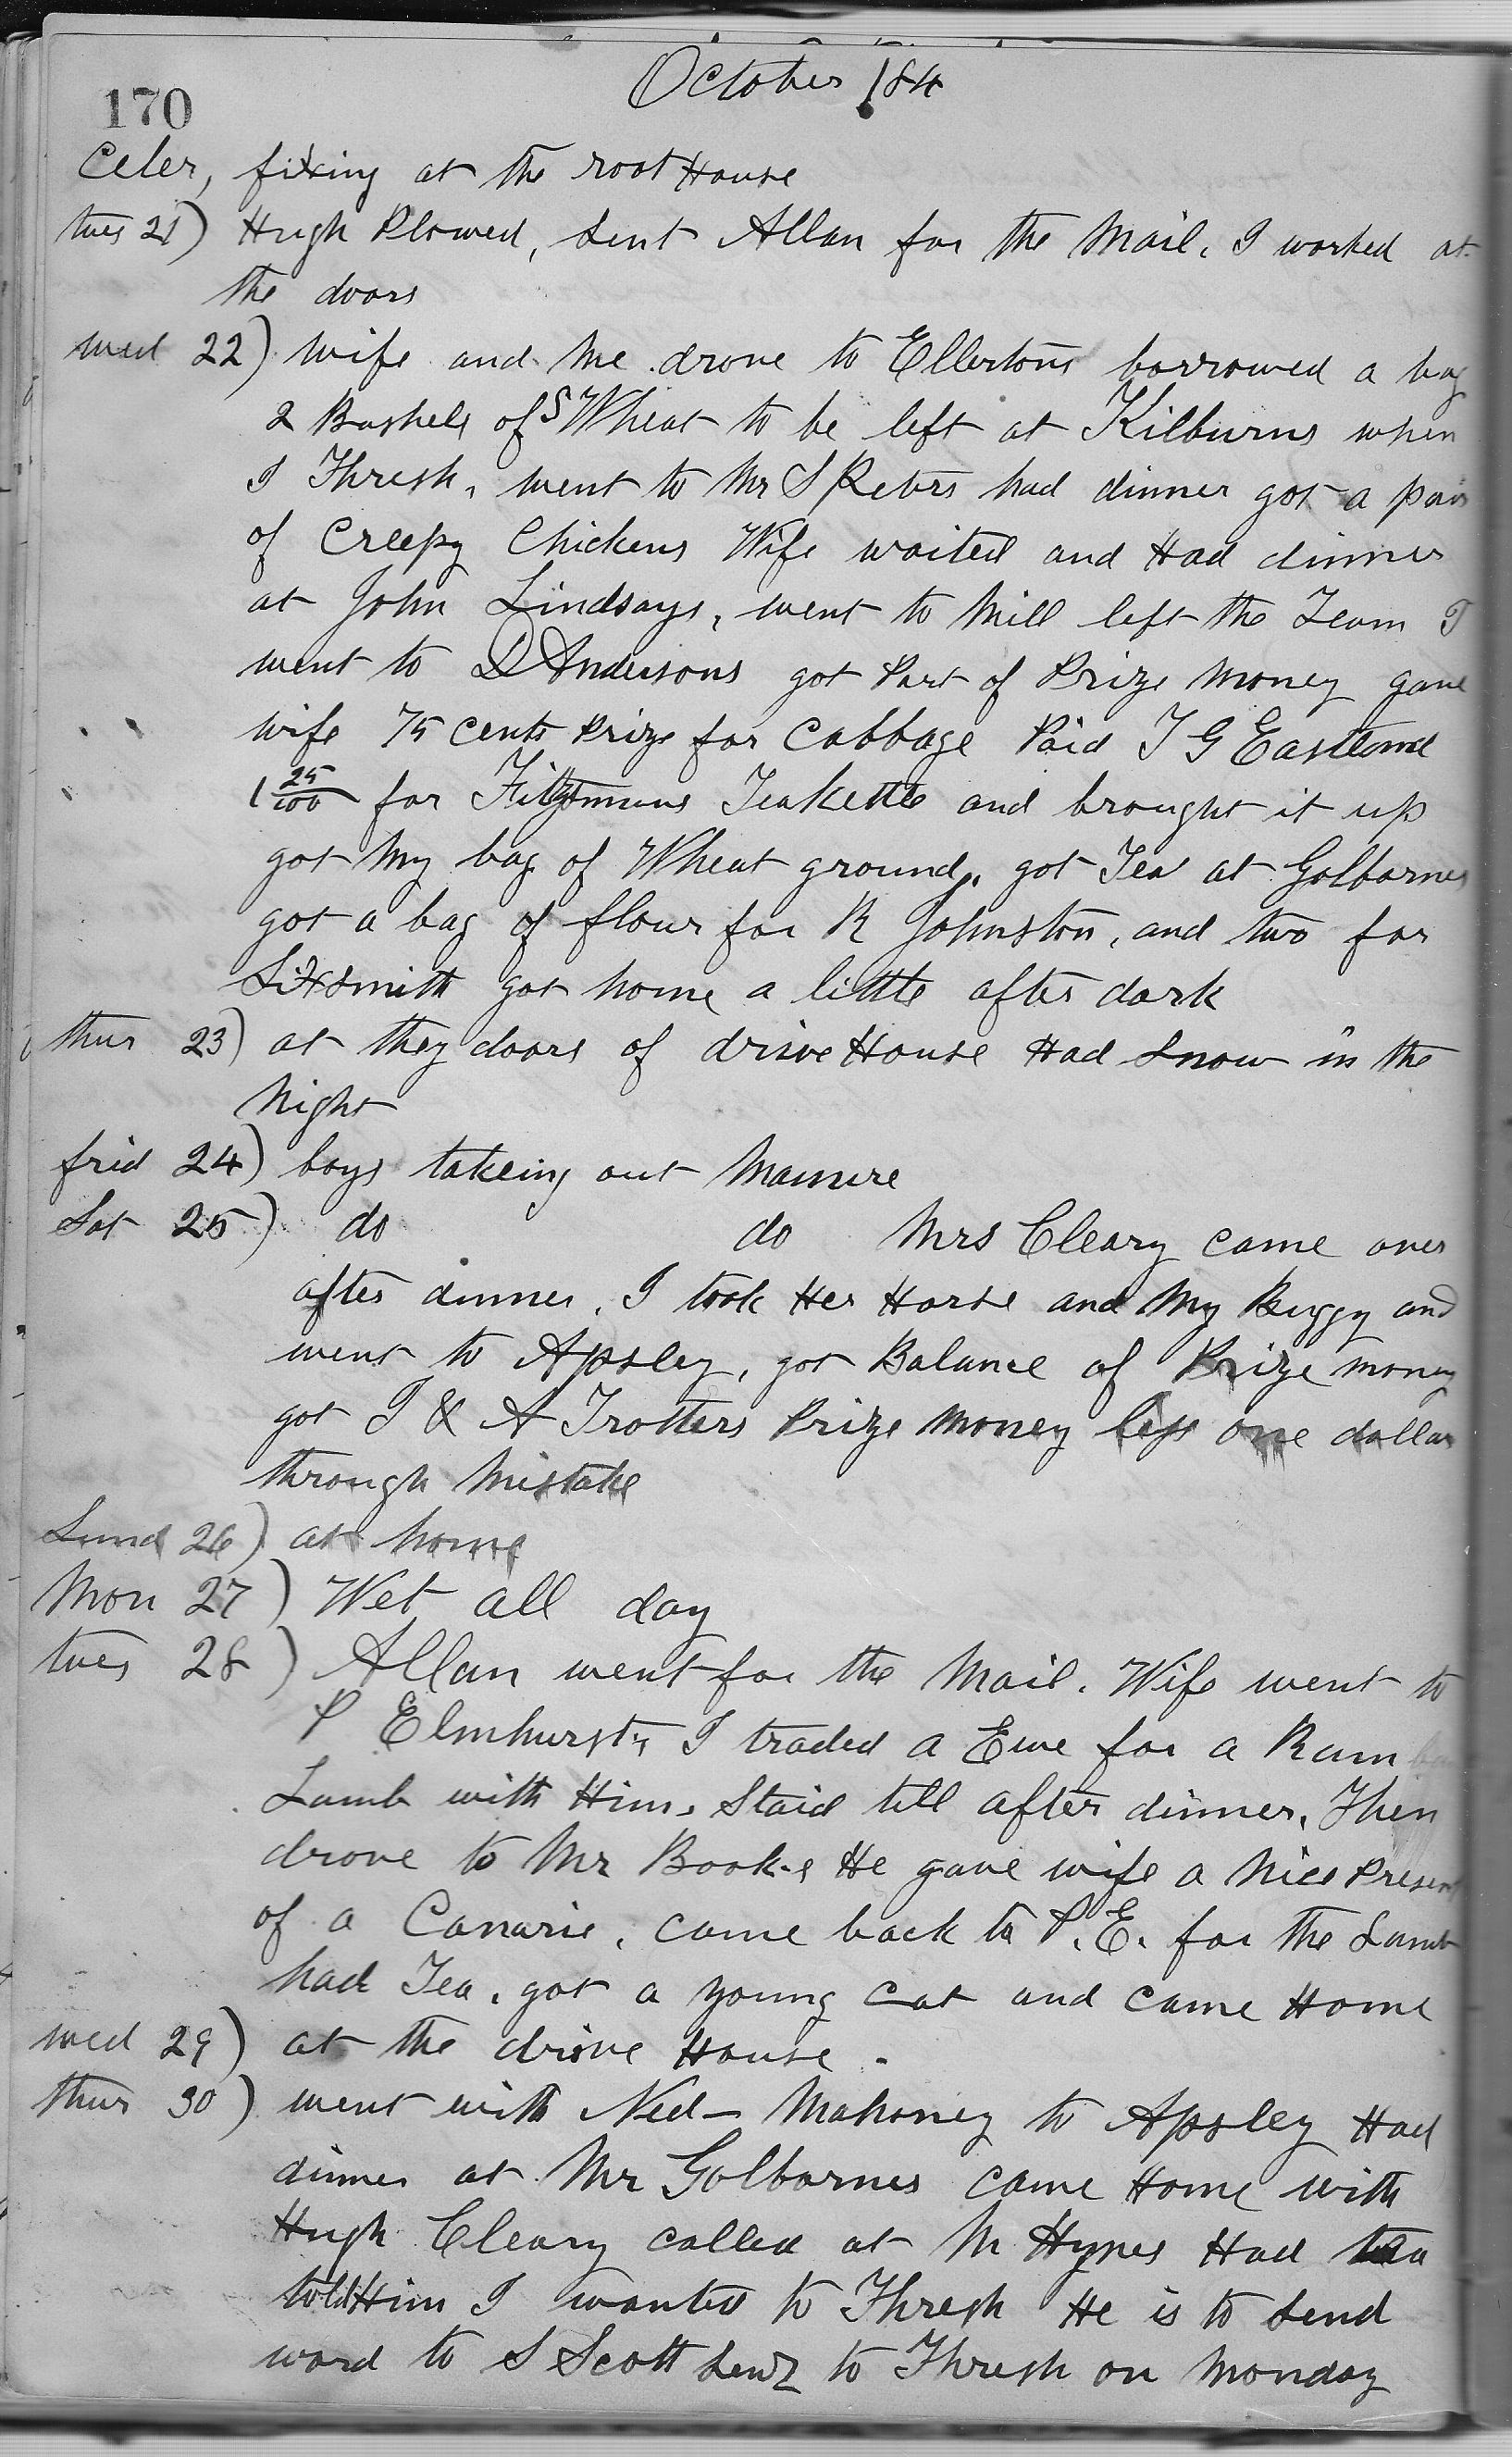 170
October /84
Celer, fixing at the root House
tues 21) Hugh Plowed, Sent Allan for the Mail, I worked at
the doors
wed 22) Wife and Me drove to Ellertons borrowed a bag
2 Bushels of S Wheat to be left at Kilburns when
I Thresh, went to Mr S Peters had dinner got a pair
of Creepy Chickens Wife waited and Had dinner
at John Lindsays, went to Mill left the Team I
went to D Andersons got Part of Prize Money gave
wife 75 cents Prize for Cabbage Paid T G Eastland
1 25/100 for Teakettle and brought it up
got My bag of Wheat ground, got Tea at Golbornes
got a bag of flour for R Johnston, and two for
Sixsmith got home a little after dark
thur 23) at they doors of drive House Had Snow in the
Night
frid 24) boys takeing out Manure
Sat 25) do do Mrs Cleary came over
after dinner, I took Her Horse and My Buggy and
went to Apsley, got Balance of Prize money
got T & A Trotters Prize Money less one dollar
through Mistake
Sund 26) at home
Mon 27) Wet all day
tues 28) Allan went for the Mail. Wife went to
P Elmhursts, I traded a Ewe for a Ram
Lamb with Him, Staid till after dinner, Then
drove to Mr Books He gave wife a Nice Present
of a Canarie, came back to P. E. for the Lamb
had Tea, got a young cat and came Home
wed 29) at the drive House.
thur 30) went with Ned Mahoney to Apsley Had
dinner at Mr Golbornes came Home with
Hugh Cleary called at M Hynes Had tea
told Him I wanted to Thresh He is to Send
word to S Scott Senr to Thresh on Monday